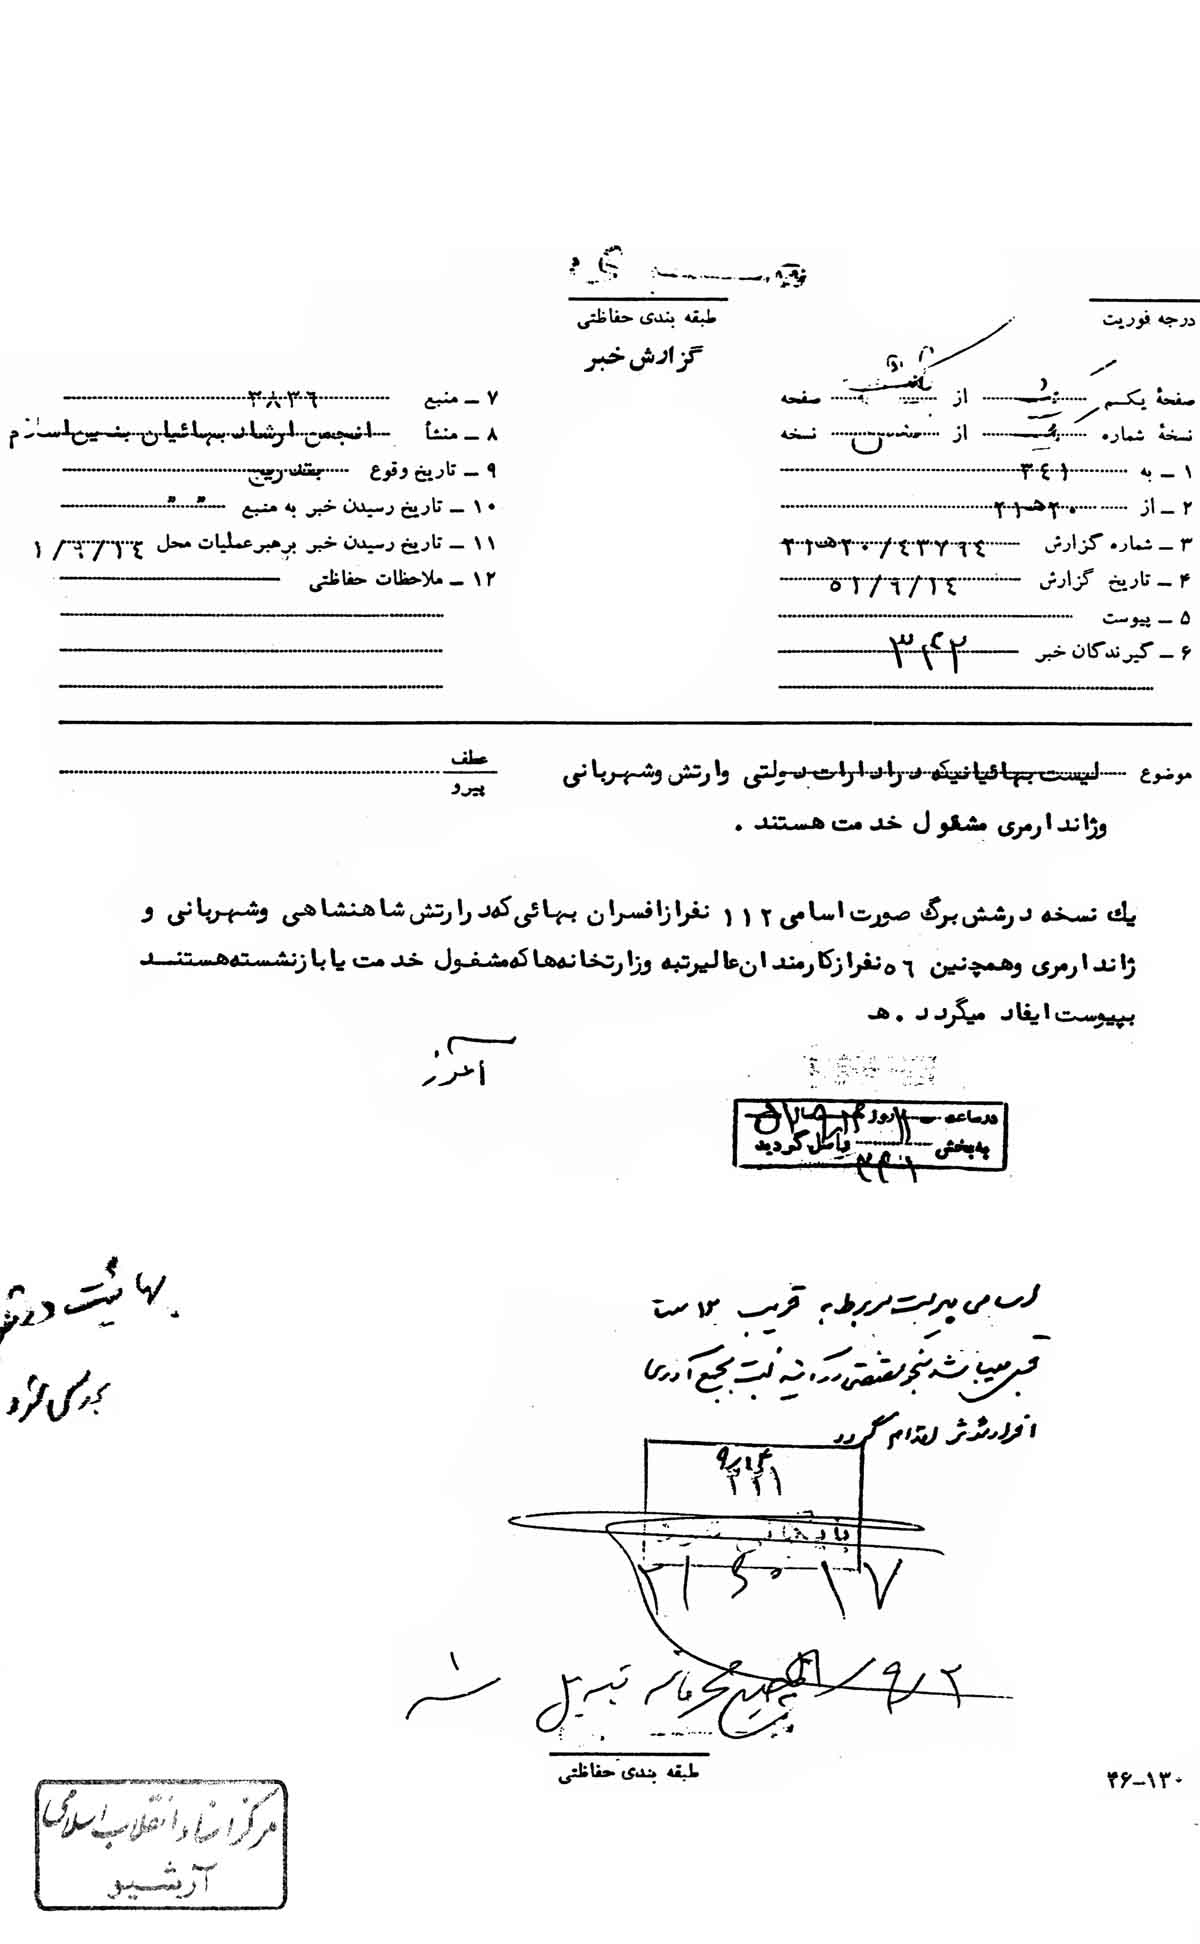 طبقه بندی حفاظتی
درجه فوریت
گزارش خبر
صفحهٔ یکم از صفحه
نسخهٔ شماره از نسخه
۱ ـ به ۳۴۱
۲ ـ از ۲۰هـ۲۱
۳ ـ شماره گزارش
۴ ـ تاریخ گزارش ۵۱/۶/۱۴
۵ ـ پیوست
۶ ـ گیرندگان خبر ۳۴۲
۷ ـ منبع ۳۸۳۶
۸ ـ منشأ انجمن ارشاد بهائیان بدین اسلام
۹ ـ تاریخ وقوع بتدریج
۱۰ ـ تاریخ رسیدن خبر به منبع " "
۱۱ ـ تاریخ رسیدن خبر برهبر عملیات محل ۱/۶/۱۴
۱۲ ـ ملاحظات حفاظتی
موضوع لیست بهائیانیکه در ادارات دولتی وارتش وشهربانی
عطف
پیرو
وژاندارمری مشقول خدمت هستند .
یك نسخه در شش برگ صورت اسامی ۱۱۲ نفر از افسران بهائی که در ارتش شاهنشاهی وشهربانی و
ژاندارمری وهمچنین ۵۶ نفر از کارمندان عالیرتبه وزارتخانه ها که مشغول خدمت یا بازنشسته هستنـــد
بپیوست ایفاد میگردد . هـ
در ساعت روز سال
به بخش ۳۴۱ واصل گردید
بهائیت در
اسامی پیوست مربوط به قریب ۱۲
قبل میباشد
افراد اقدام گردد
۳۴۱
بایگانی
۹/۲
تبدیل شد
طبقه بندی حفاظتی
۴۶-۱۳۰
مرکز اسناد انقلاب اسلامی
آرشیو